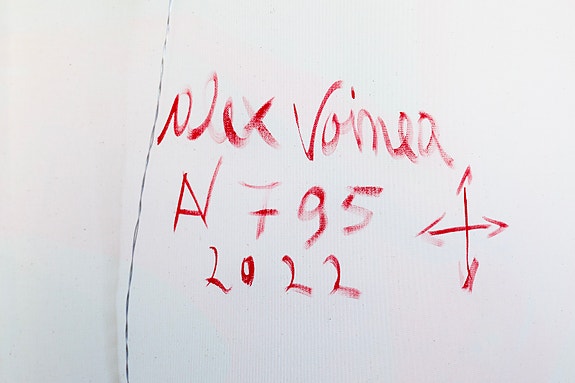 Alex Voinea
N 795
2022